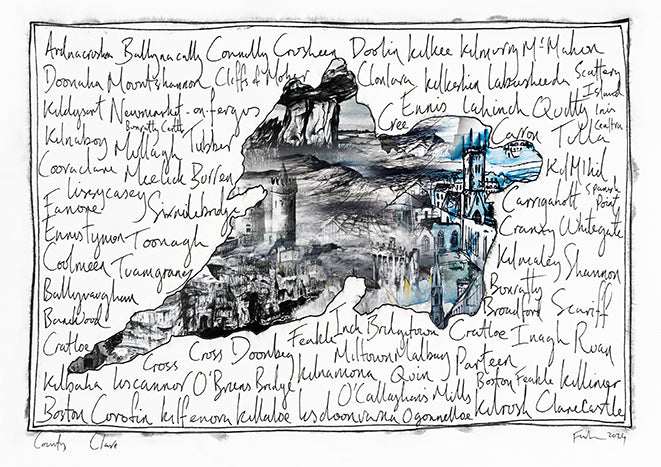 Ardnacrusha Ballynacally Connolly Crosheen Doolin Kilkee Kilmurry McMahon
Doonaha Mountshannon Cliffs of Moher Clonlara Kilkishin Labasheeda Scattery Island
Kildysart Newmarket-on-fergus Ennis Lahinch Quilty Inis Cealtra
Kilnaboy Mullagh Bunratty Castle Tubber Cree Carron Tulla
Cooraclare Meelick Burren Kilmihil
Lisseycasey Carrigaholt Spanish Point
Fanore Sixmilebridge Cranny Whitegate
Ennistymon Toonagh Kilmaley Shannon
Coolmeen Tuamgraney
Ballyvaughan Bunratty Scariff
Broadford
Cratloe Feakle Inch Bridgetown Cratloe Inagh Ruan
Cross Cross Doonbeg Miltown Malbay Parteen
Kilbaha Liscannor O'Briens Bridge Kilnamona Quin Boston Feakle Killimer
O'Callaghans Mills
Boston Corofin Kilfenora Killaloe Lisdoonvarna Ogonnelloe Kilrush Clarecastle
County Clare 2024